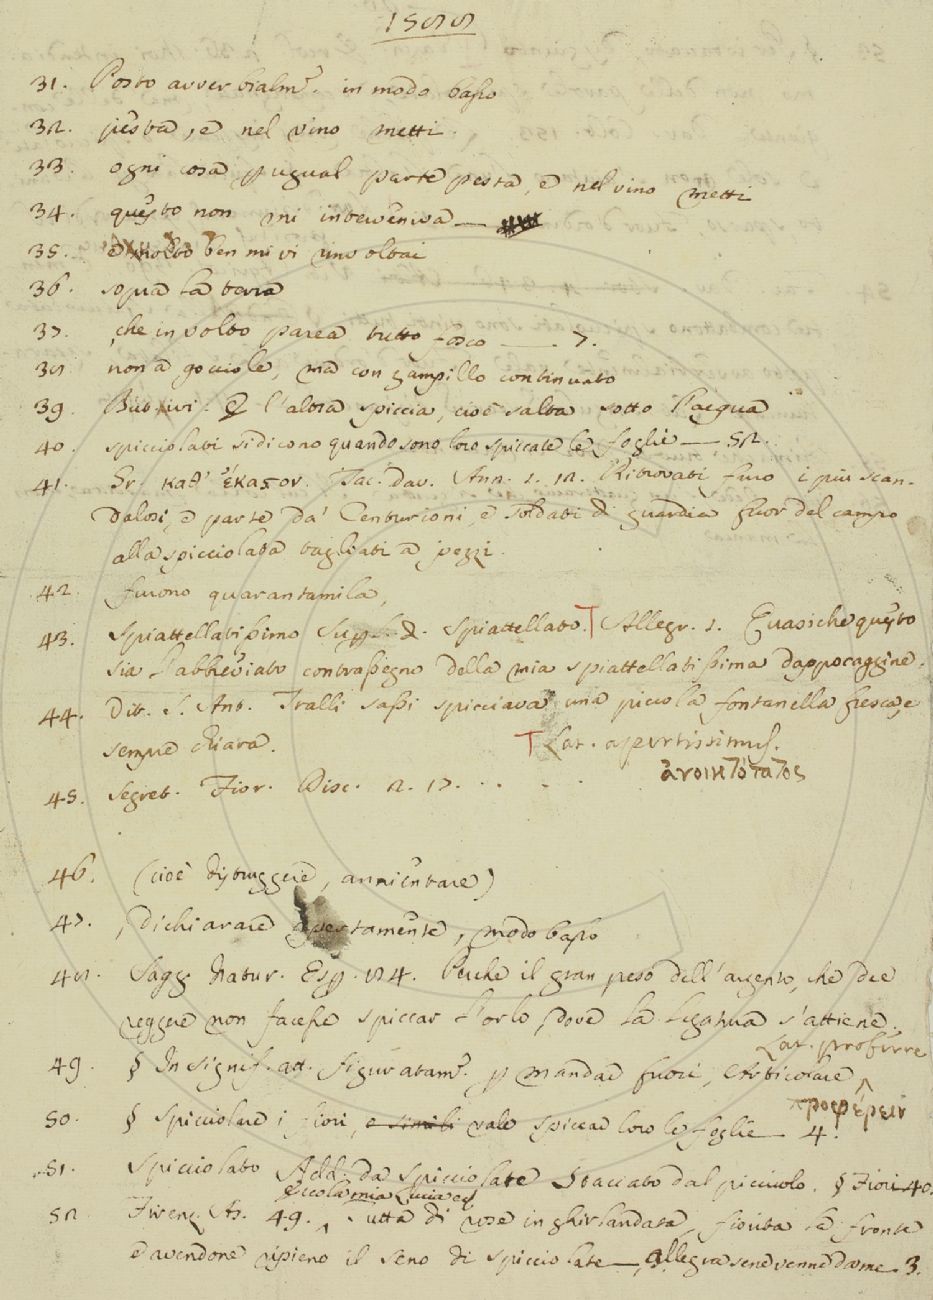 1588
31. Posto avverbialm. in modo basso
32. pesta, e nel vino metti.
33. ogni cosa p ugual parte pesta, e nel vino metti
34. questo non mi interveniva —
35. e molto ben mi vi involtai
36. sopra la terra
37. che involto parea tutto fosco — 7.
38 non a gocciole, ma con zampillo continuato
39. But ivi: E l'altra spiccia, cioè salta sotto l'acqua
40. spicciolati si dicono quando sono loro spiccate le foglie — 52.
41. Gr. καθ' ἕκαστον. Tac. dav. Ann. 1. 12. Ritrovati furo i più scan-
dalosi, e parte da' Centurioni, e soldati di guardia fuor del campo
alla spicciolata tagliati a pezzi.
42. furono quarantamila,
43. Spiattellatissimo Superl. di spiattellato. T Allegr. 1. Quasiche questo
sia l'abbreviato contrassegno della mia spiattellatissima dappocaggine.
44. Dit. S. Ant. Tralli sassi spicciava una piccola fontanella fresca, e
sempre chiara. T Lat. apertissimus.
ἀνοικτότατος
45. Segret. Fior. Disc. 2. 17. . . .
46. (cioè distruggere, annientare)
47. , dichiarare apertamente, modo basso
48 Sagg. Natur. Esp. 24. Perche il gran peso dell'argento, che dee
reggere non facesse spiccar l'orlo, dove la legatura s'attiene.
Lat. proferre
49. § In signif. att. figuratam. p mandar fuori, Articolare ^
προφέρειν
50. § Spicciolare i fiori, e simili vale spiccar loro le foglie — 4.
51. Spicciolato Add. da Spicciolare Staccato dal picciuolo. § Fiori 40.
eccola mia Lucia ed
52 Firenz. As. 49. ^ tutta di rose inghirlandata, fiorita la fronte
e avendone ripieno il seno di spicciolate —, allegra sene venne da me. 3.